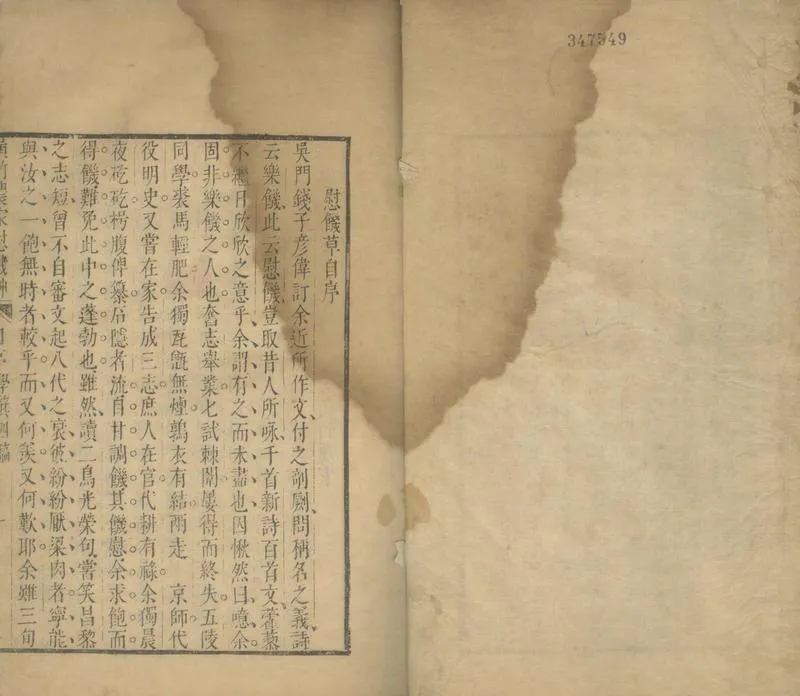 347549
慰饑草自序
吳門錢子彥偉訂余近所作文付之剞劂問稱名之義詩
云樂饑此云慰饑豈取昔人所咏千首新詩百首文藿藜
不繼日欣欣之意乎余謂有之而未盡也因愀然曰噫余
固非樂饑之人也奮志舉業七試棘闈屢得而終失五陵
同學裘馬輕肥余獨瓦甑無煙鶉衣有結兩走　京師代
役明史又嘗在家告成三志庶人在官代耕有祿余獨晨
夜矻矻枵腹俾纂居隱者流自甘調饑其饑慰余求飽而
得饑難免此中之蓬勃也雖然讀二鳥光榮句嘗笑昌黎
之志短曾不自審文起八代之衰彼紛紛厭粱肉者寧能
與汝之一飽無時者較乎而又何羨又何歎耶余雖三旬